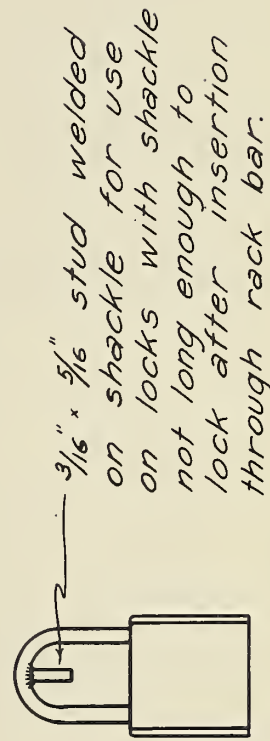 3/16" x 5/16" stud welded
on shackle for use
on locks with shackle
not long enough to
lock after insertion
through rack bar.